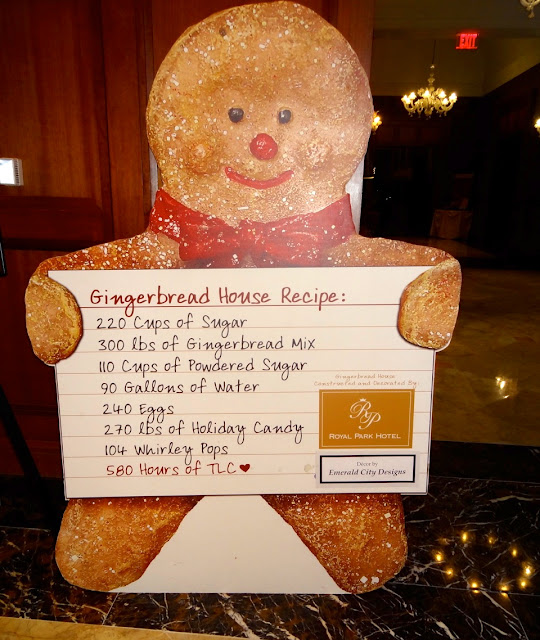 EXIT
Gingerbread House Recipe:
220 Cups of Sugar
300 lbs of Gingerbread Mix
110 Cups of Powdered Sugar
90 Gallons of Water
240 Eggs
270 lbs of Holiday Candy
104 Whirley Pops
580 Hours of TLC♥
Gingerbread House
Constructed and Decorated By:
RP
ROYAL PARK HOTEL
Decor by
Emerald City Designs